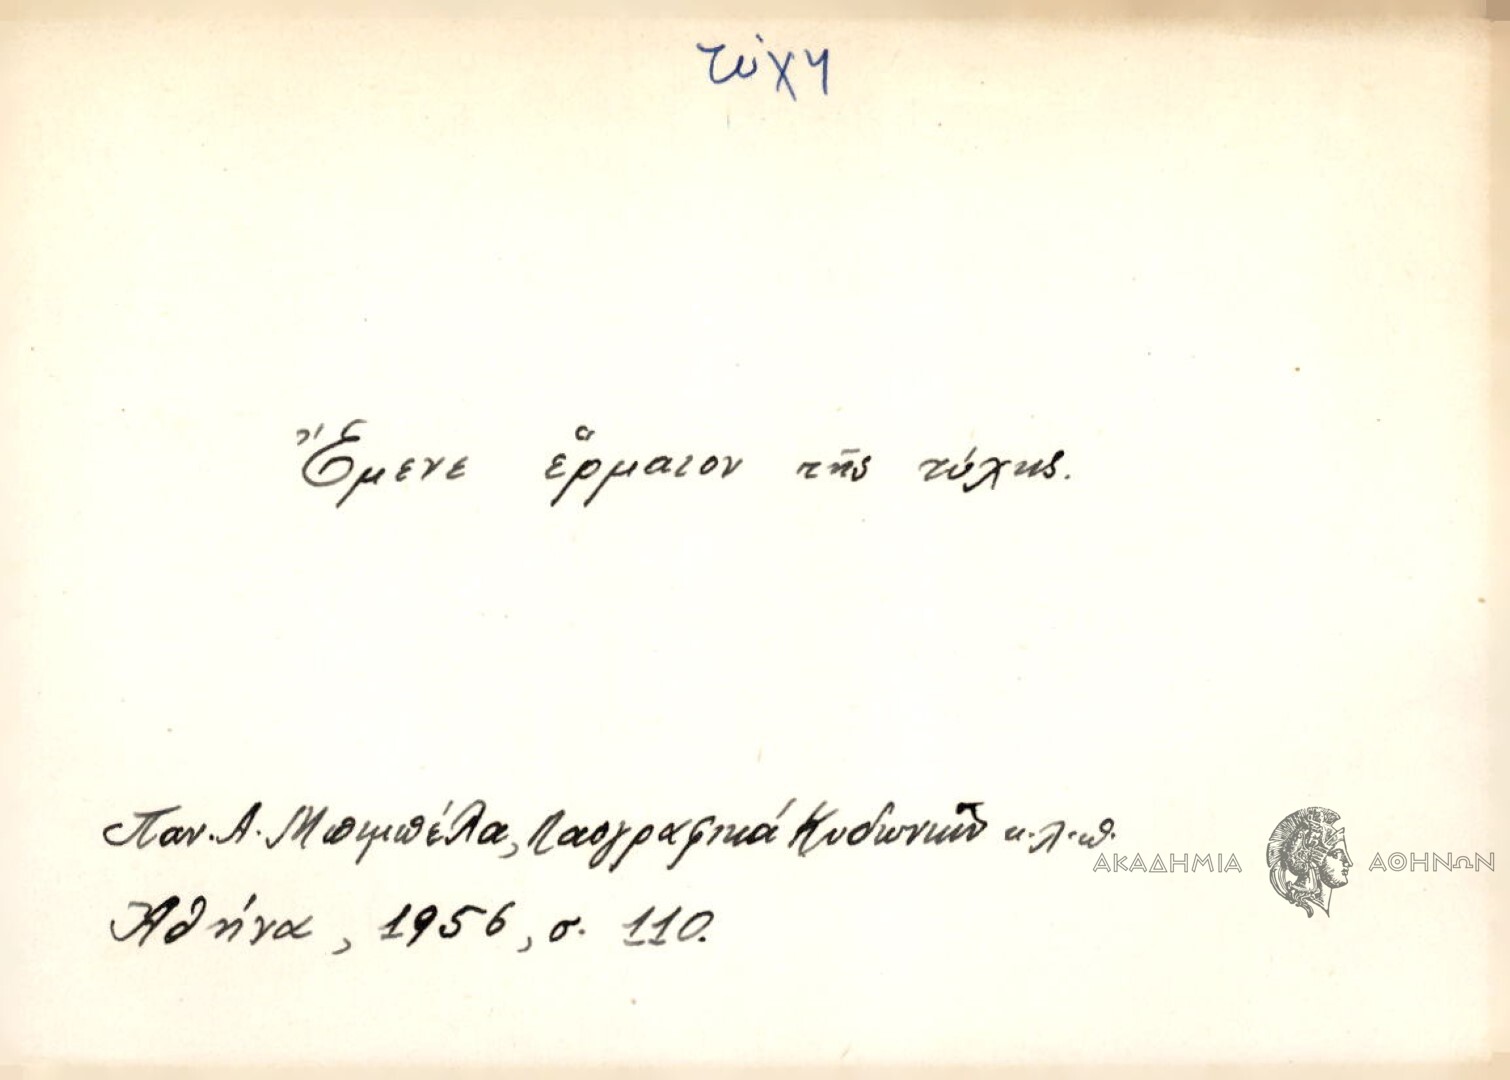 τύχη
Ἔμενε ἕρμαιον τῆς τύχης.
Παν. Α. Μπιμπέλα, Λαογραφικά Κυδωνιῶν κ.λ.π.
Ἀθήνα, 1956, σ. 110.
ΑΚΑΔΗΜΙΑ ΑΘΗΝΩΝ